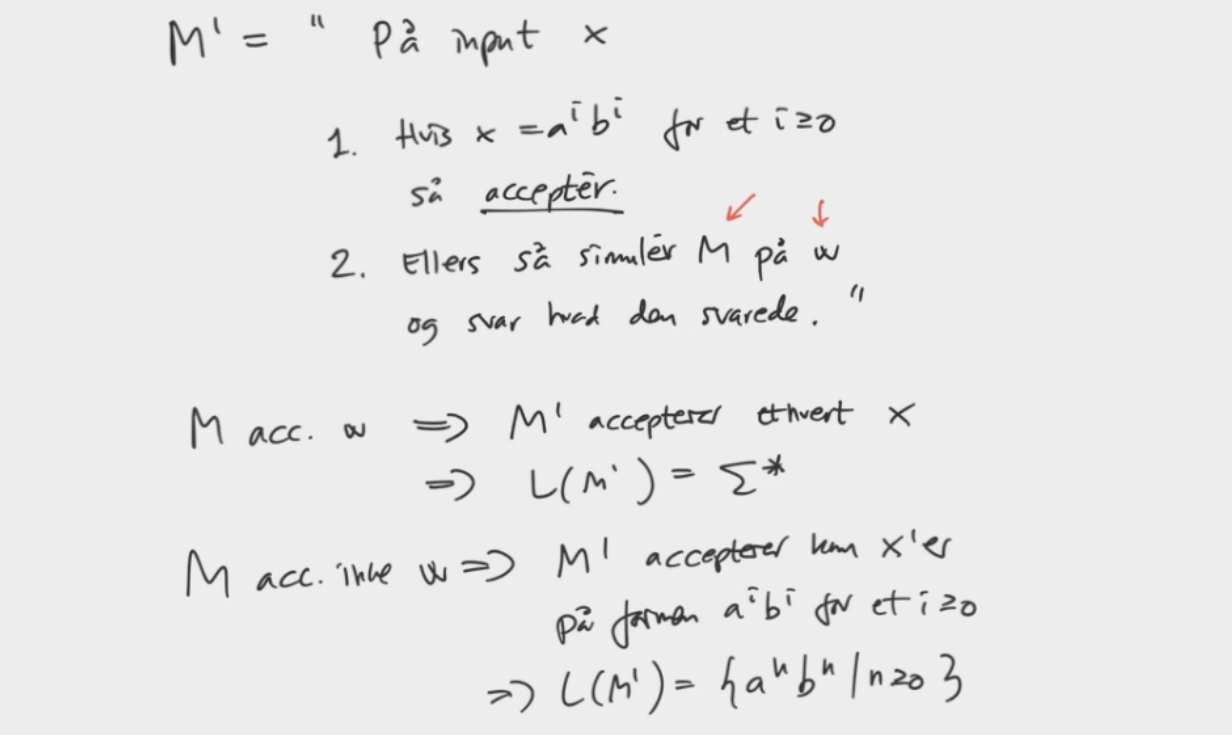 M' = " På input x
1. Hvis x = aⁱbⁱ for et i ≥ 0
så acceptér.
2. Ellers så simulér M på w
og svar hvad den svarede. "
M acc. w ⇒ M' accepterer ethvert x
⇒ L(M') = Σ*
M acc. ikke w ⇒ M' accepterer kun x'er
på formen aⁱbⁱ for et i ≥ 0
⇒ L(M') = {aⁿbⁿ | n ≥ 0}